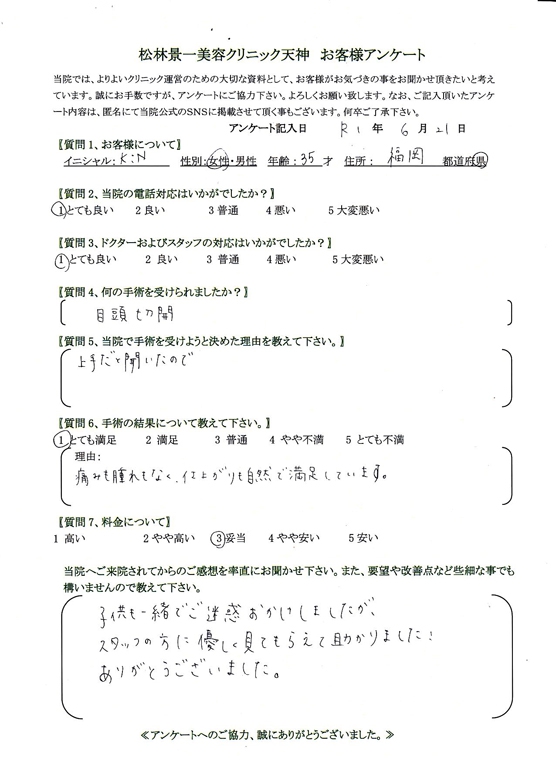 松林景一美容クリニック天神　お客様アンケート
当院では、よりよいクリニック運営のための大切な資料として、お客様がお気づきの事をお聞かせ頂きたいと考え
ています。誠にお手数ですが、アンケートにご協力下さい。よろしくお願い致します。なお、ご記入頂いたアンケ
ート内容は、匿名にて当院公式のSNSに掲載させて頂く事もございます。何卒ご了承下さい。
アンケート記入日　R1 年 6 月 21 日
〖質問1、お客様について〗
イニシャル: K:N　性別:女性・男性　年齢:35 才　住所:　福岡　都道府県
〖質問2、当院の電話対応はいかがでしたか?〗
1とても良い　2良い　3普通　4悪い　5大変悪い
〖質問3、ドクターおよびスタッフの対応はいかがでしたか?〗
1とても良い　2 良い　3 普通　4悪い　5大変悪い
〖質問4、何の手術を受けられましたか?〗
目頭切開
〖質問5、当院で手術を受けようと決めた理由を教えて下さい。〗
上手だと聞いたので
〖質問6、手術の結果について教えて下さい。〗
1とても満足　2 満足　3 普通　4 やや不満　5 とても不満
理由:
痛みも腫れもなく、仕上がりも自然で満足しています。
〖質問7、料金について〗
1 高い　2やや高い　3妥当　4やや安い　5安い
当院へご来院されてからのご感想を率直にお聞かせ下さい。また、要望や改善点など些細な事でも
構いませんので教えて下さい。
子供も一緒でご迷惑おかけしましたが、
スタッフの方に優しく見てもらえて助かりました!
ありがとうございました。
≪アンケートへのご協力、誠にありがとうございました。≫